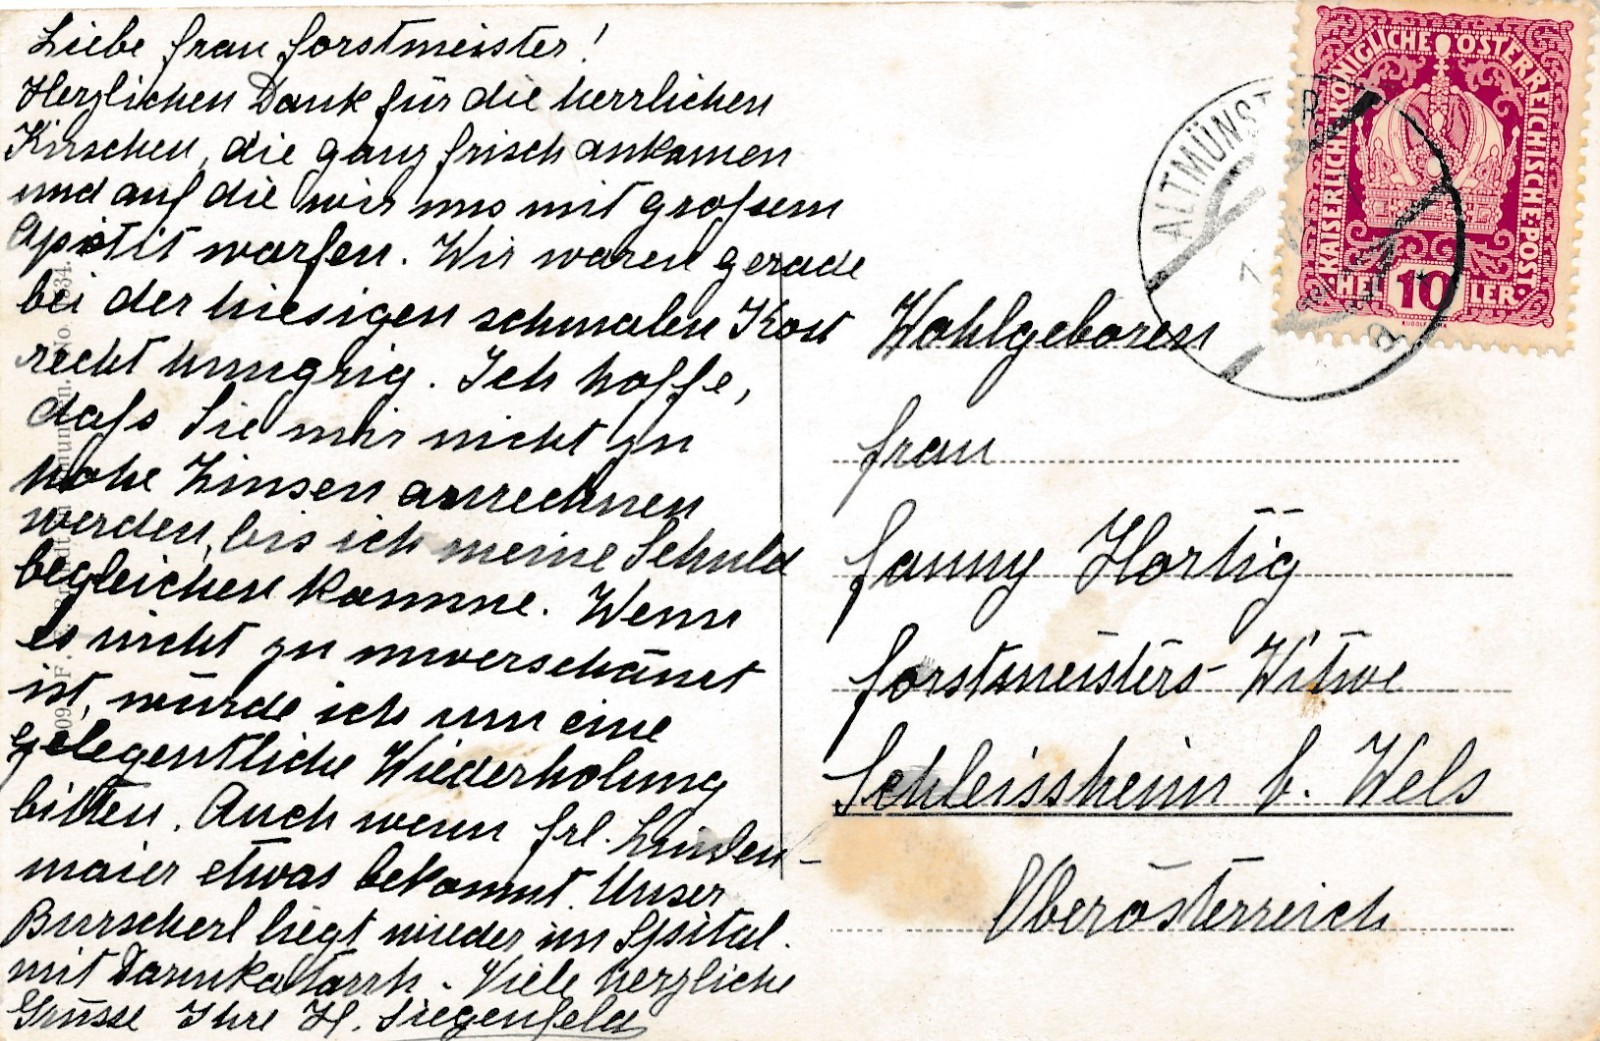 Liebe Frau Forstmeister!
Herzlichen Dank für die herrlichen
Kirschen, die ganz frisch ankamen
und auf die wir uns mit großem
Apetit warfen. Wir waren gerade
bei der hiesigen schmalen Kost
recht hungrig. Ich hoffe,
dafs Sie mir nicht zu
hohe Zinsen anrechnen
werden, bis ich meine Schuld
begleichen komme. Wenn
es nicht zu unverschämt
ist, würde ich um eine
gelegentliche Wiederholung
bitten. Auch wenn Frl. Linden-
maier etwas bekommt. Unser
Burscherl liegt wieder im Spital
mit Darmkatarrh. Viele herzliche
Grüsse Ihre H. Siegenfeld
KAISERLICH KÖNIGLICHE ÖSTERREICHISCHE POST
HELLER
10
ALTMÜNSTER
a
Wohlgeboren
Frau
Fanny Hartig
Forstmeisters-Witwe
Schleissheim b. Wels
Oberösterreich